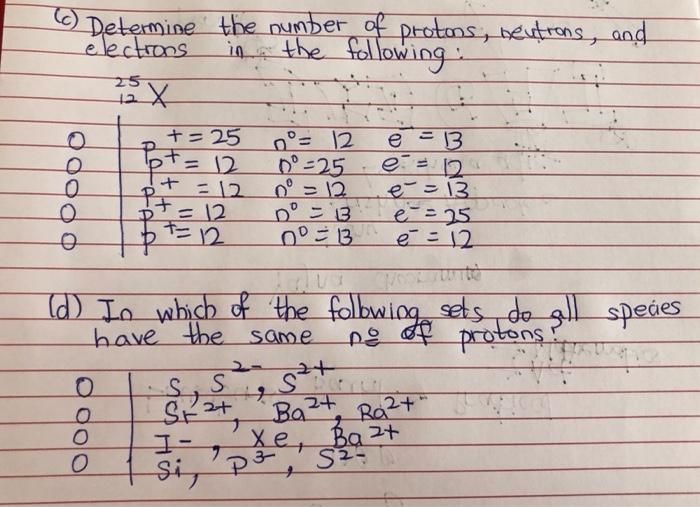 (c) Determine the number of protons, neutrons, and
electrons in the following:
25
12 X
p+ = 25 n° = 12 e- = 13
p+ = 12 n° = 25 e- = 12
p+ = 12 n° = 12 e- = 13
p+ = 12 n° = 13 e- = 25
p+ = 12 n° = 13 e- = 12
(d) In which of the following sets do all species
have the same no of protons?
S, S2-, S2+
Sr2+, Ba2+, Ra2+
I-, Xe, Ba2+
Si, P3-, S2-